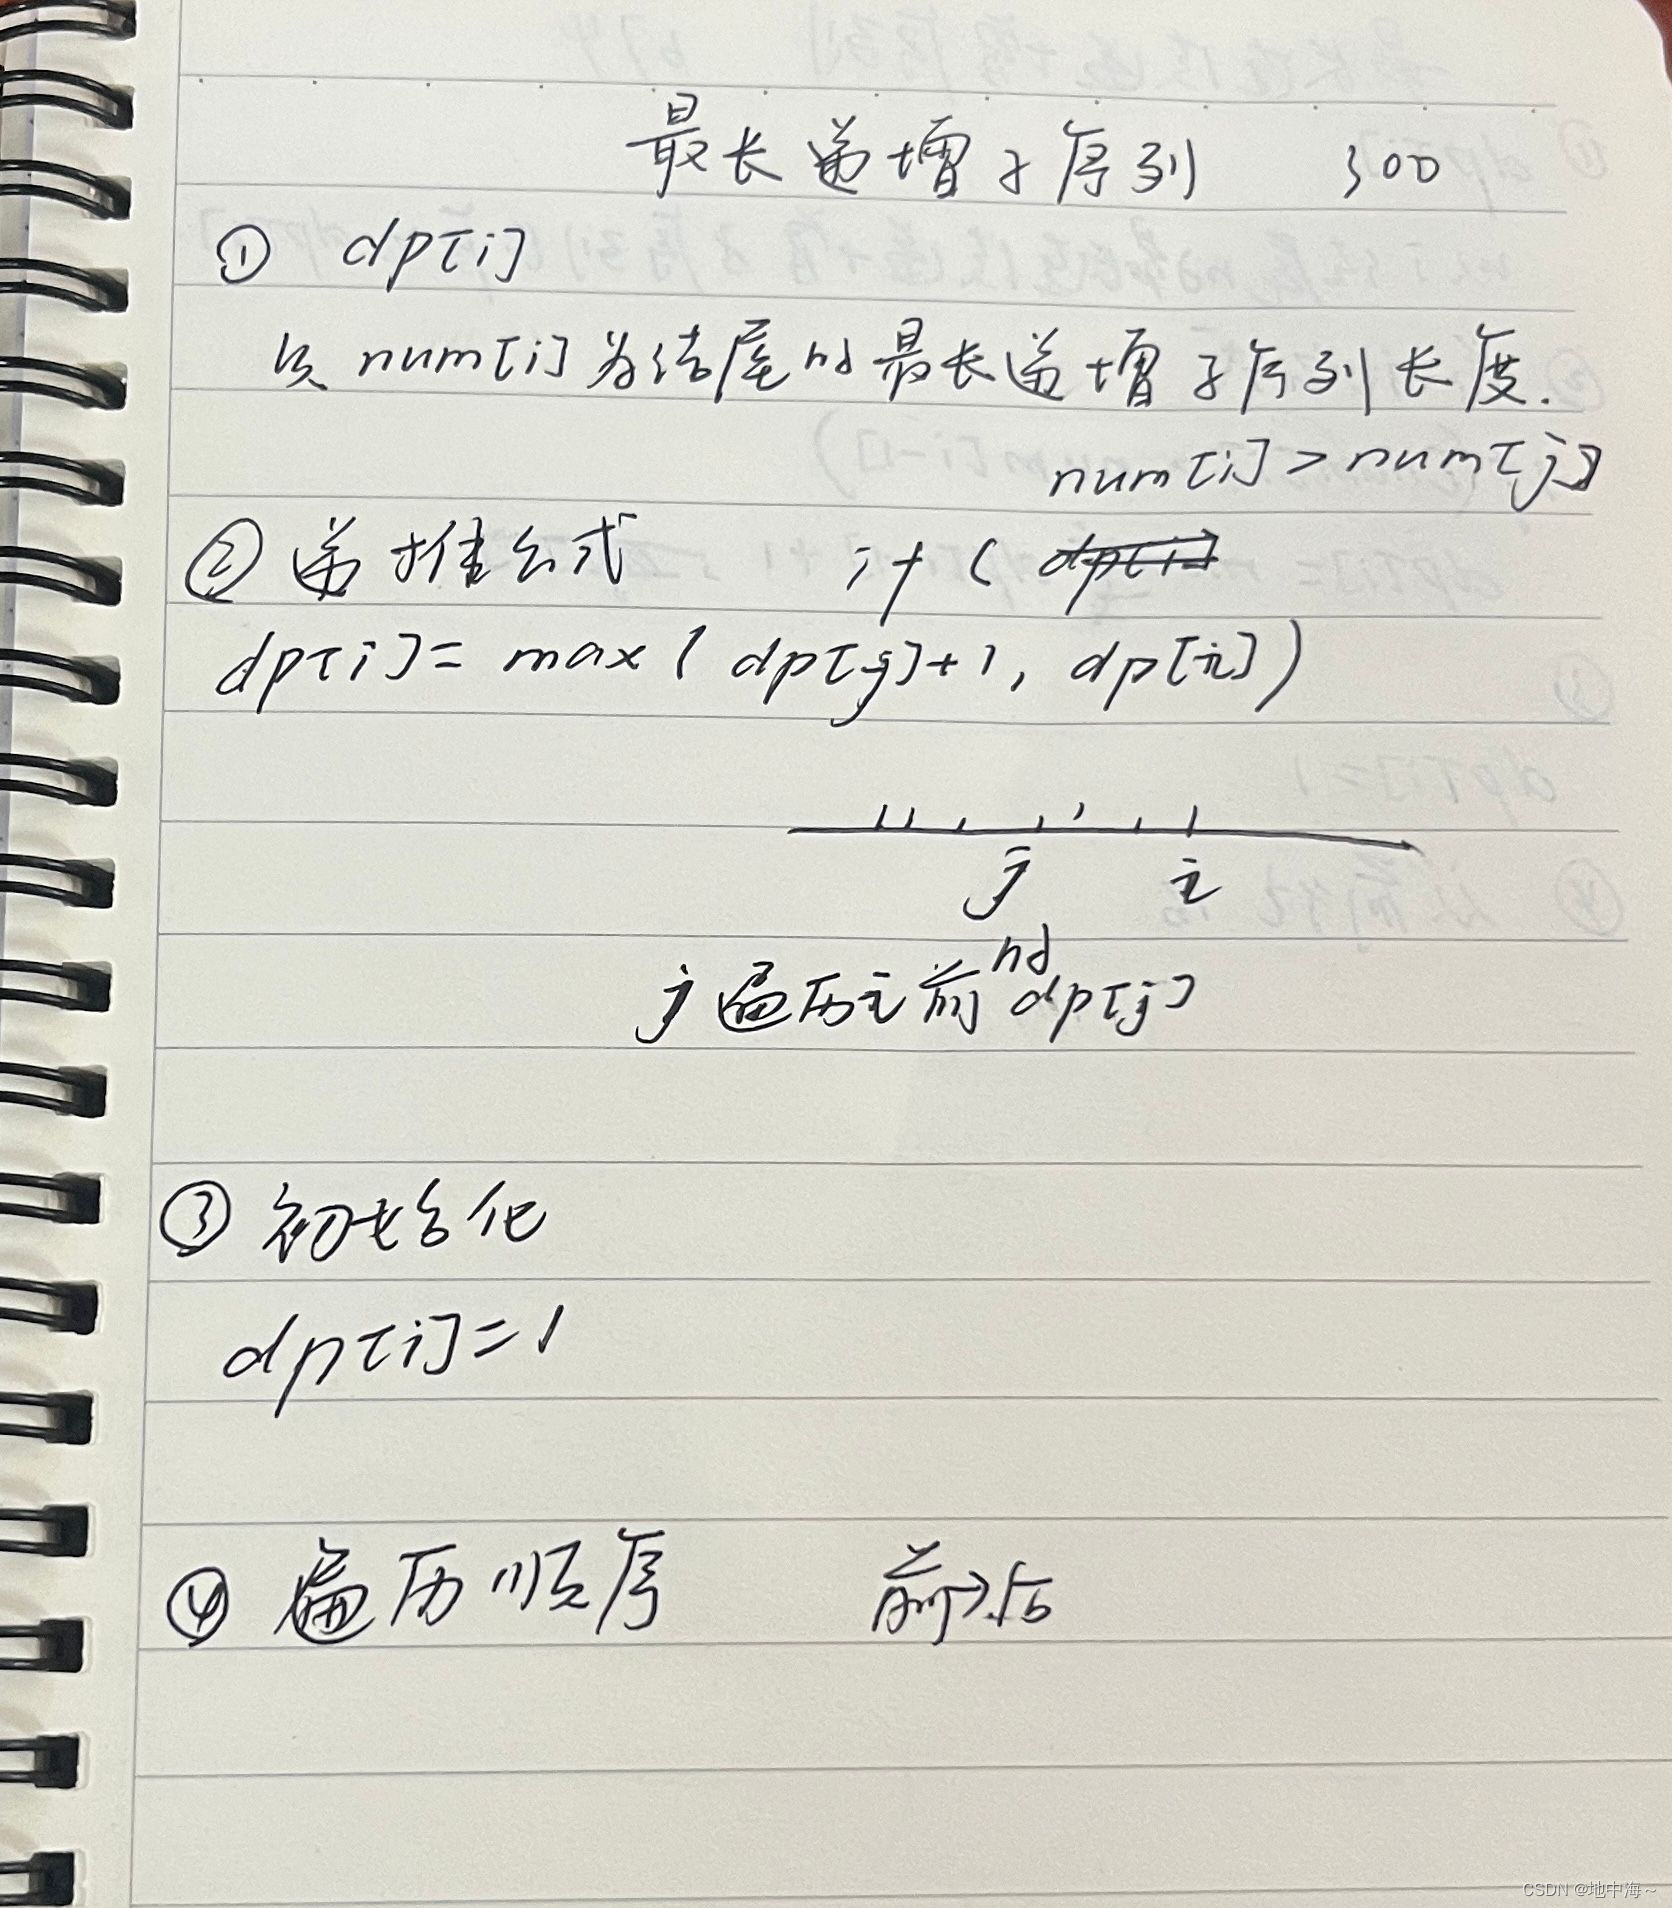 最长递增子序列 300
① dp[i]
以 num[i] 为结尾的最长递增子序列长度.
num[i] > num[j]
② 递推公式 if ( dp[i]
dp[i] = max ( dp[j]+1, dp[i] )
j i
的
j遍历i前 dp[j]
③ 初始化
dp[i]=1
④ 遍历顺序 前→后
CSDN @地中海~